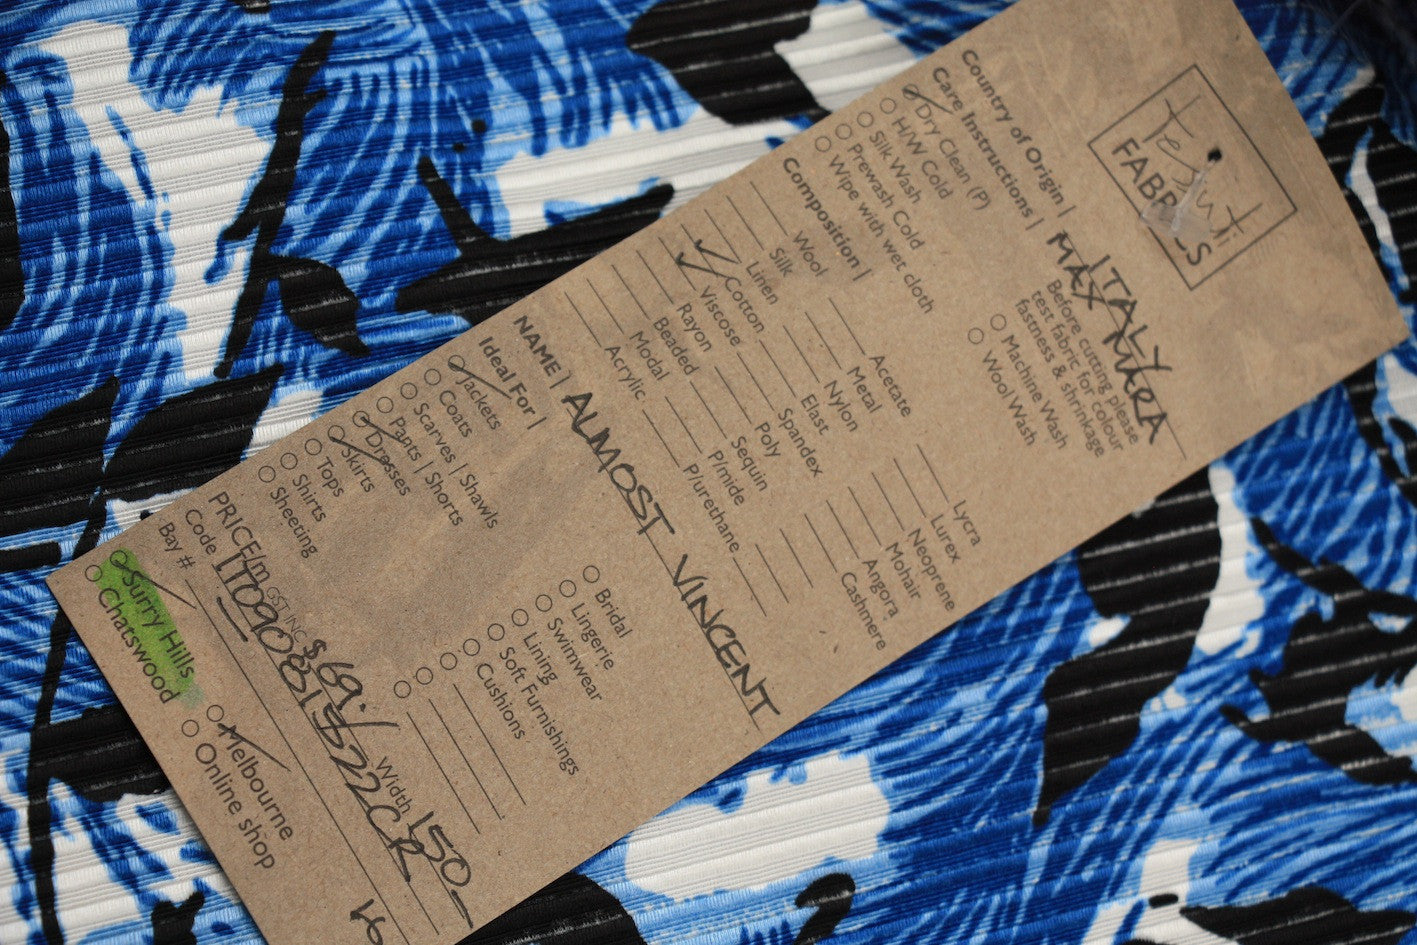 Tessuti
FABRICS
Country of Origin | ITALY
MAX MARA
Care Instructions | Before cutting please
test fabric for colour
fastness & shrinkage
Dry Clean (P)
H/W Cold
Silk Wash
Prewash Cold
Wipe with wet cloth
Machine Wash
Wool Wash
Composition |
Wool
Silk
Linen
Cotton
Viscose
Rayon
Beaded
Modal
Acrylic
Acetate
Metal
Nylon
Elast
Spandex
Poly
Sequin
P/mide
P/urethane
Lycra
Lurex
Neoprene
Mohair
Angora
Cashmere
NAME | ALMOST VINCENT
Ideal For |
Jackets
Coats
Scarves | Shawls
Pants | Shorts
Dresses
Skirts
Tops
Shirts
Sheeting
Bridal
Lingerie
Swimwear
Lining
Soft Furnishings
Cushions
PRICE/m GST INC $69. Width 150
Code
Bay #
Surry Hills
Chatswood
Melbourne
Online shop